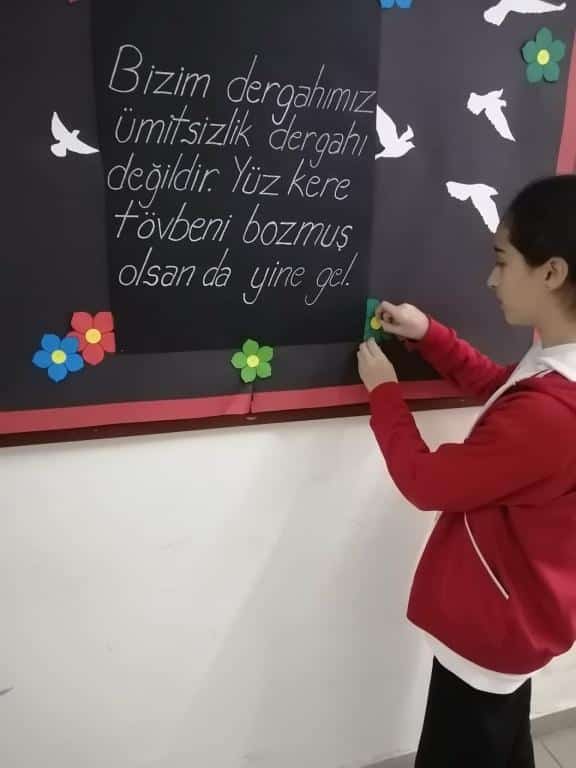 Bizim dergahımız
ümitsizlik dergahı
değildir. Yüz kere
tövbeni bozmuş
olsan da yine gel!